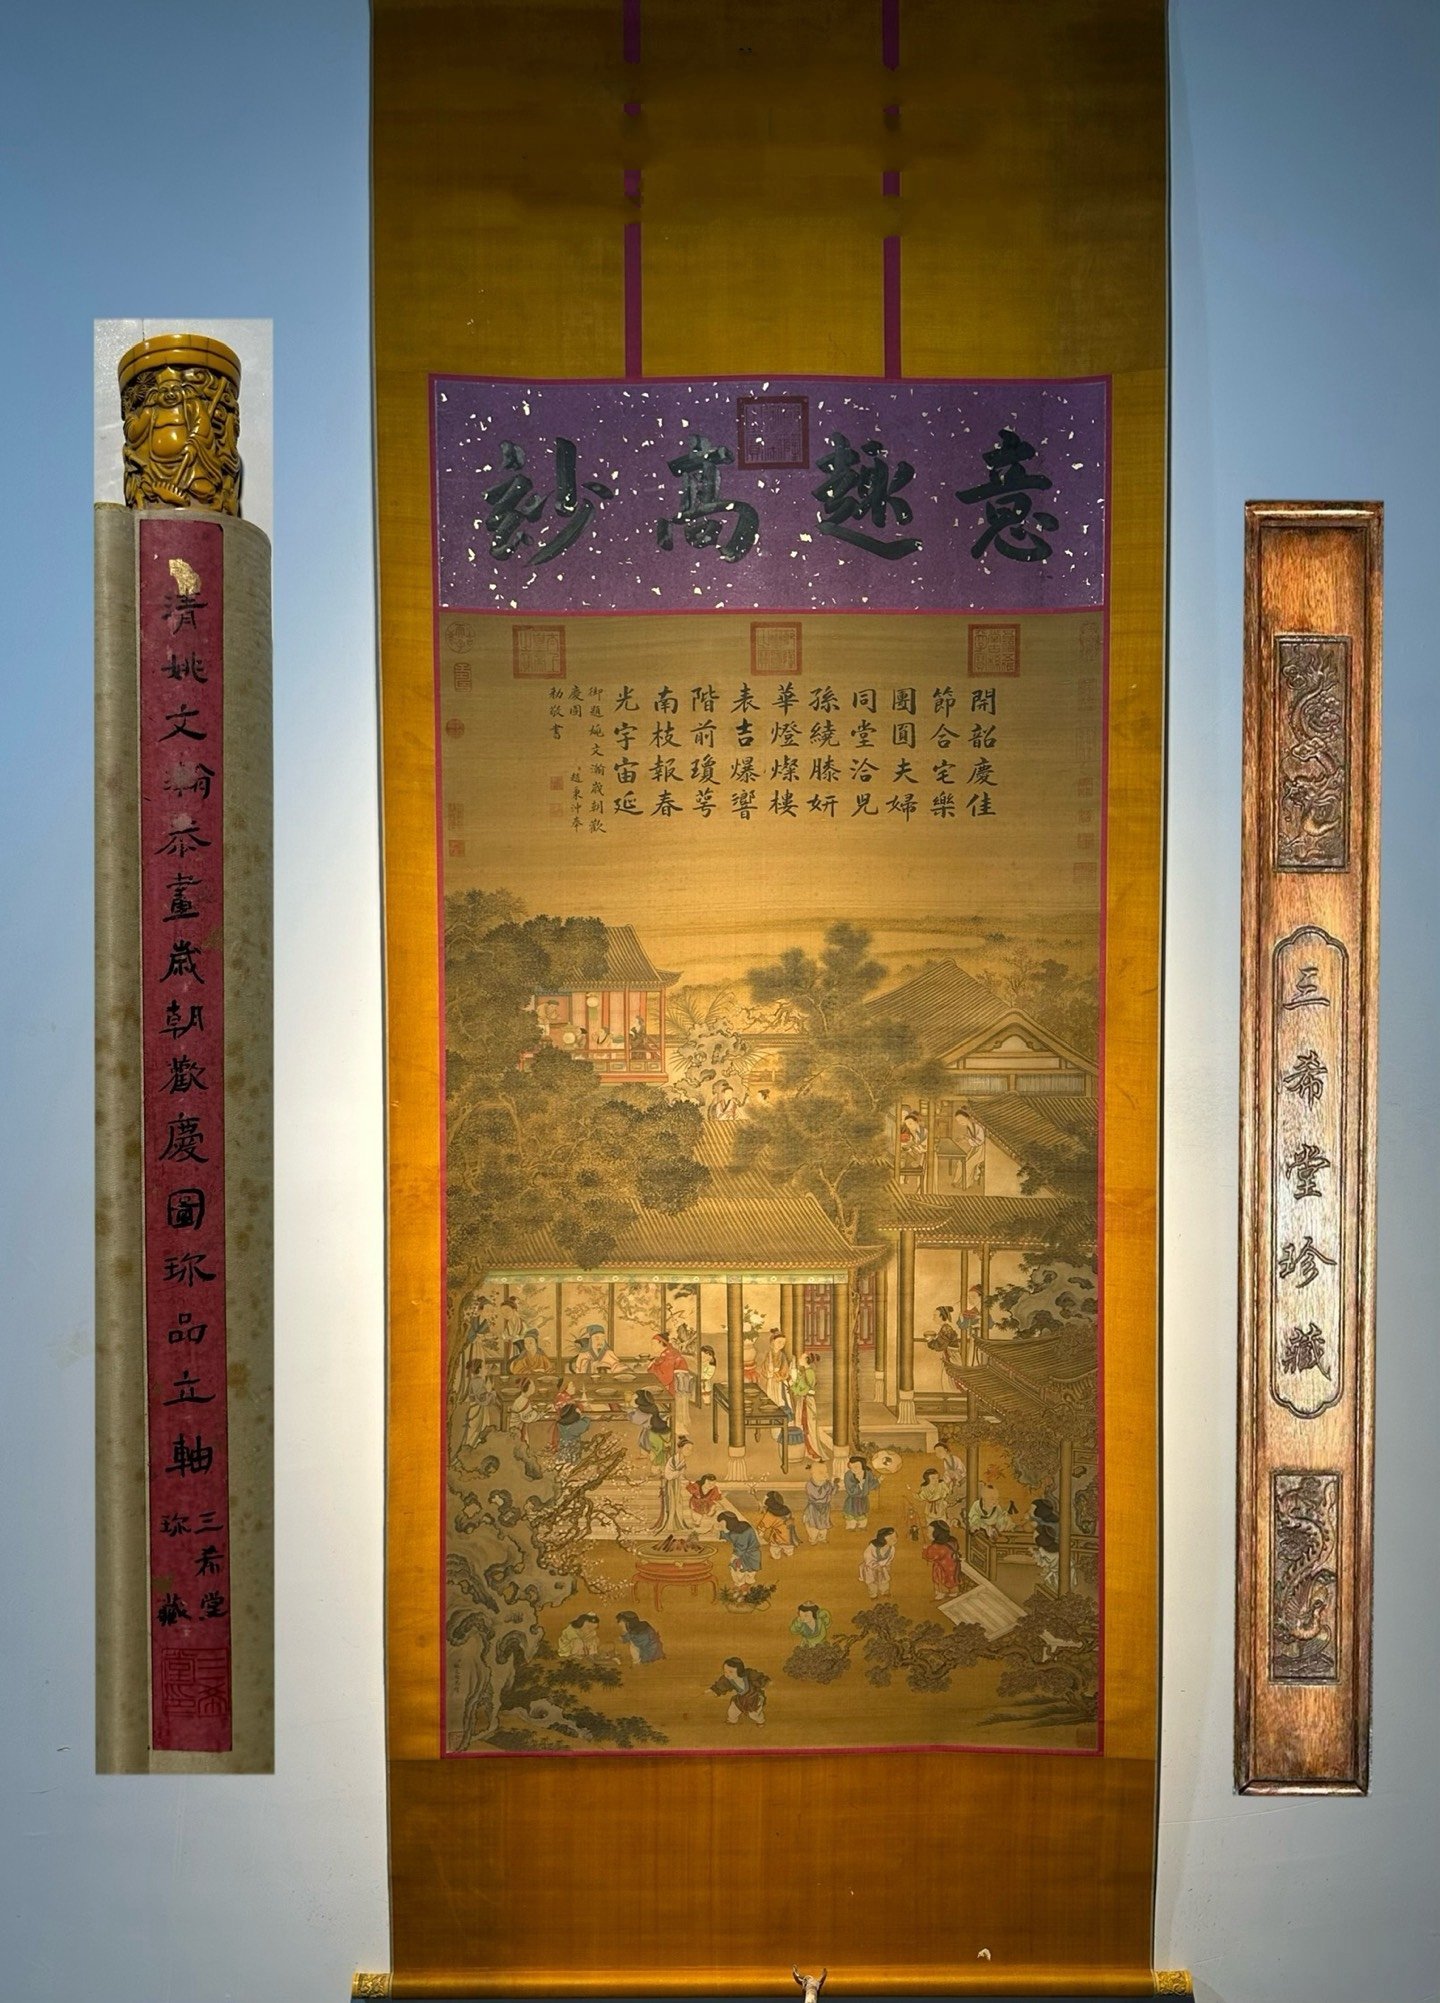 清姚文瀚恭畫歲朝歡慶圖珎品立軸
三希堂
珎藏
意趣高妙
開韶慶佳
節合宅樂
團圓夫婦
同堂洽兒
孫繞膝妍
華燈燦樓
表吉爆響
階前瓊萼
南枝報春
光宇宙延
御題姚文瀚歲朝歡
慶圖 趙秉沖奉
勅敬書
三希堂珍藏